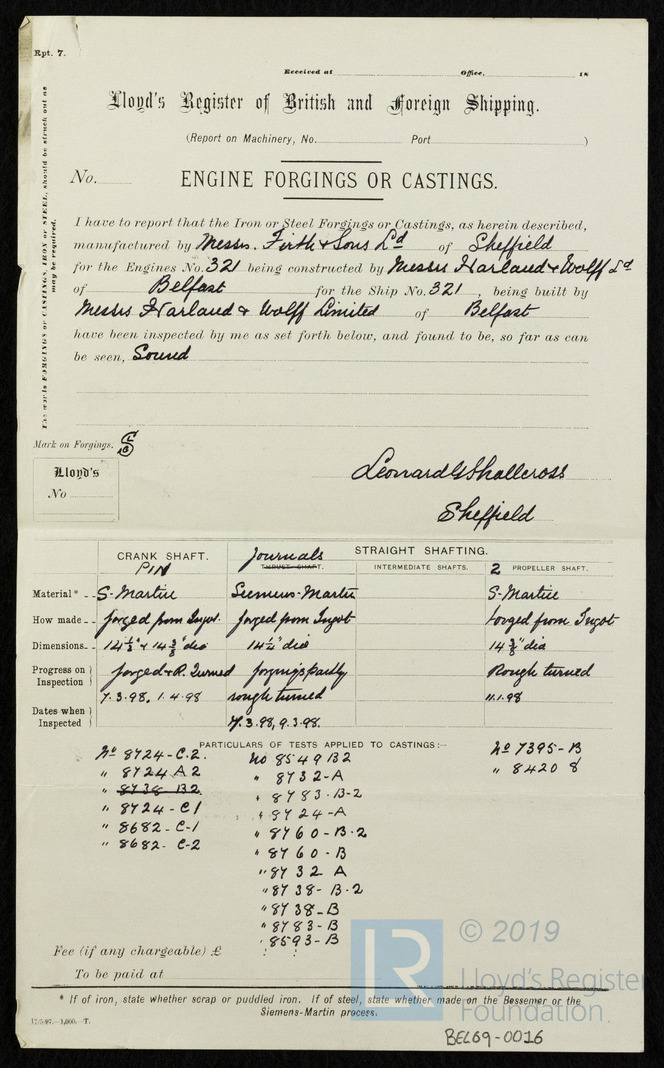 Rpt. 7.
Received at Office, 18
Lloyd's Register of British and Foreign Shipping.
(Report on Machinery, No. Port )
No.
ENGINE FORGINGS OR CASTINGS.
The words FORGINGS or CASTINGS, IRON or STEEL, should be struck out as may be required.
I have to report that the Iron or Steel Forgings or Castings, as herein described,
manufactured by Messrs. Firth & Sons Ld of Sheffield
for the Engines No. 321 being constructed by Messrs Harland & Wolff Ld
of Belfast for the Ship No. 321, being built by
Messrs Harland & Wolff Limited of Belfast
have been inspected by me as set forth below, and found to be, so far as can
be seen, Sound
Mark on Forgings.
Lloyd's
No
Leonard G Shallcross
Sheffield
CRANK SHAFT. Journals STRAIGHT SHAFTING.
PIN THRUST SHAFT. INTERMEDIATE SHAFTS. 2 PROPELLER SHAFT.
Material* S-Martin Siemens-Martin S-Martin
How made forged from Ingot. forged from Ingot forged from Ingot
Dimensions 14 1/2" & 14 3/8" dia 14 1/4" dia 14 3/8" dia
Progress on Inspection forged & R. Turned forgings partly rough turned Rough turned
Dates when Inspected 7.3.98, 1.4.98 7.3.98, 9.3.98. 11.1.98
PARTICULARS OF TESTS APPLIED TO CASTINGS:—
No 8724-C.2. No 8549 B2 No 7395-B
" 8724 A2 " 8732-A " 8420 8
" 8738 B2 " 8783-B-2
" 8724-C1 " 8724-A
" 8682-C-1 " 8760-B-2
" 8682-C-2 " 8760-B
" 8732 A
" 8738-B-2
" 8738-B
" 8783-B
" 8593-B
Fee (if any chargeable) £
To be paid at
* If of iron, state whether scrap or puddled iron. If of steel, state whether made on the Bessemer or the
Siemens-Martin process.
—1,000.—T.
BEL69-0016
LR
© 2019
Lloyd's Register
Foundation.